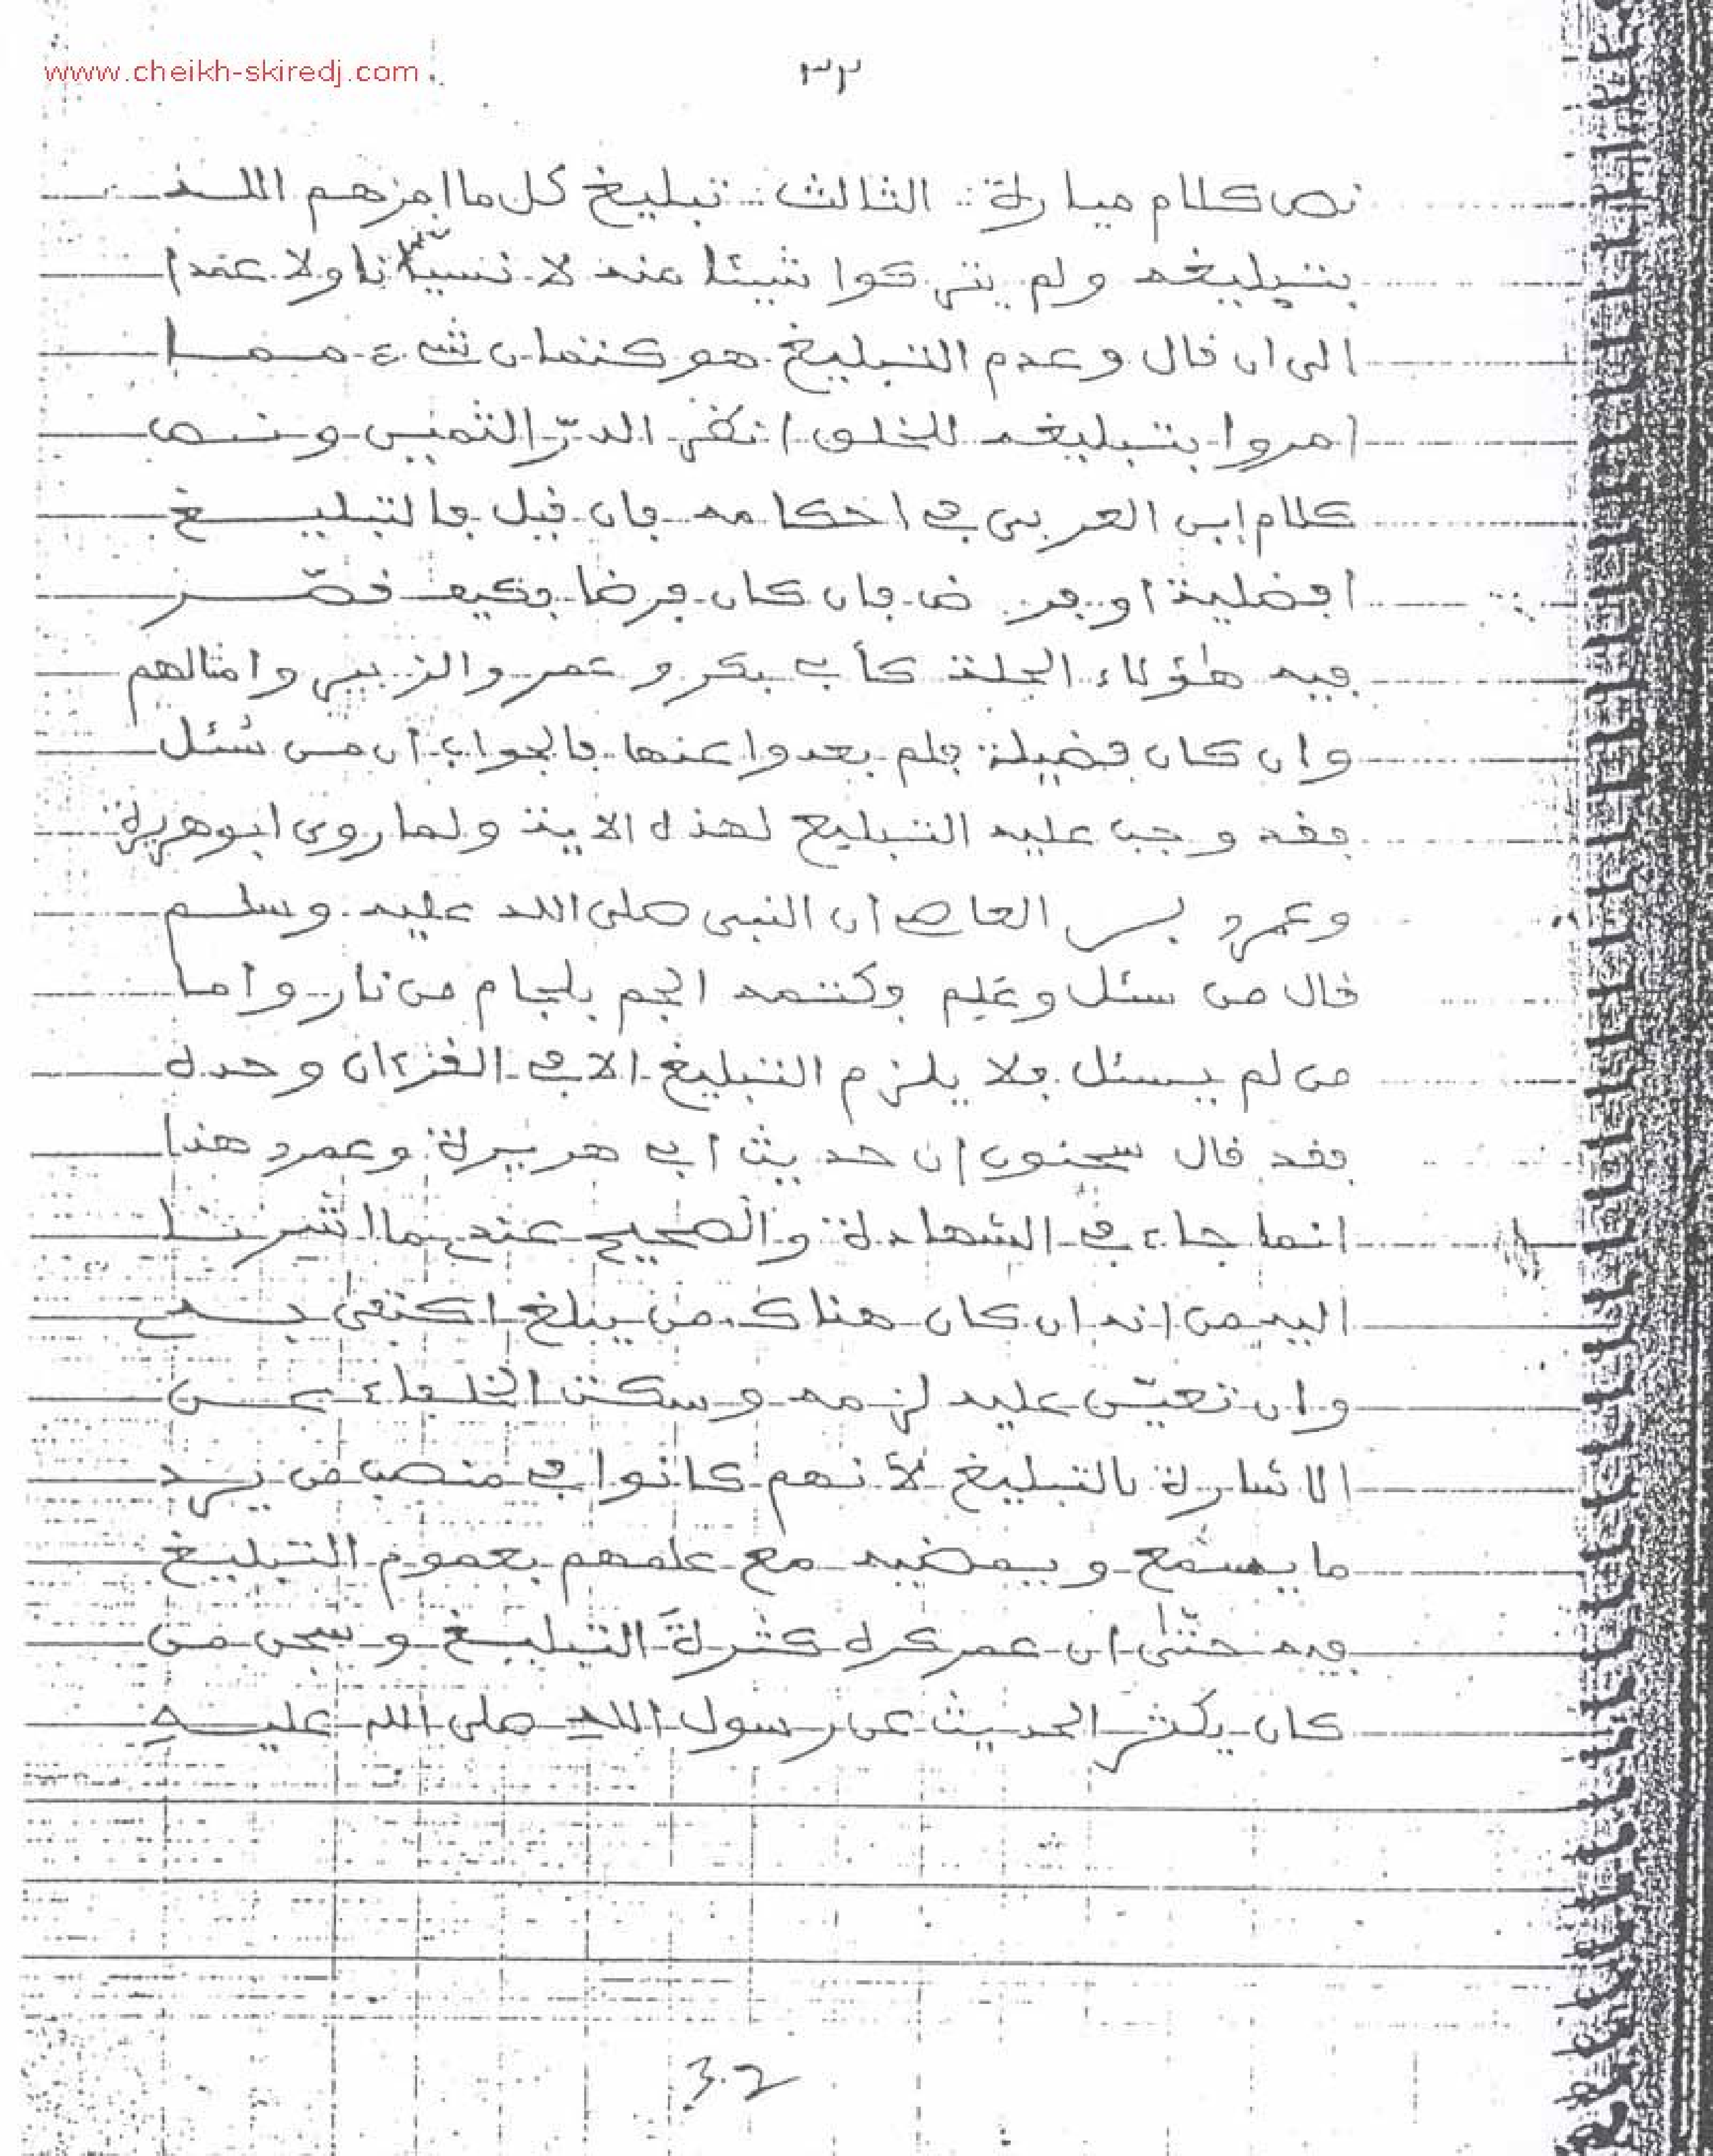 www.cheikh-skiredj.com
٣٢
نص كلام ميارة: الثالث: تبليغ كل ما امرهم الله
بتبليغه ولم يتركوا شيئا منه لا نسيانا ولا عمدا
الى ان قال وعدم التبليغ هو كتمان شيء مما
امروا بتبليغه للخلق انظر الدرّ الثمين ونص
كلام ابن العربي في احكامه فان قيل فالتبليغ
افضلية او فرض فان كان فرضا فكيف قصّر
فيه هؤلاء الجلة كأبي بكر وعمر والزبير وامثالهم
وان كان فضيلة فلم بعدوا عنها فالجواب ان من سُئل
فقد وجب عليه التبليغ لهذه الاية ولما روى ابو هريرة
وعمرو بن العاص ان النبي صلى الله عليه وسلم
قال من سئل وعَلِم فكتمه الجم بلجام من نار واما
من لم يسئل فلا يلزم التبليغ الا في القرءان وحده
فقد قال سحنون ان حديث ابي هريرة وعمرو هذا
انما جاء في الشهادة والصحيح عندي ما اشرنا
اليه من انه ان كان هناك من يبلغ اكتفى به
وان تعيّن عليه لزمه وسكت الخلفاء عن
الاشارة بالتبليغ لأنهم كانوا في منصب من يرد
ما يسمع ويمضيه مع علمهم بعموم التبليغ
فيه حتّى ان عمر كره كثرةَ التبليغ وسجن من
كان يكثر الحديث عن رسول الله صلى الله عليه
32